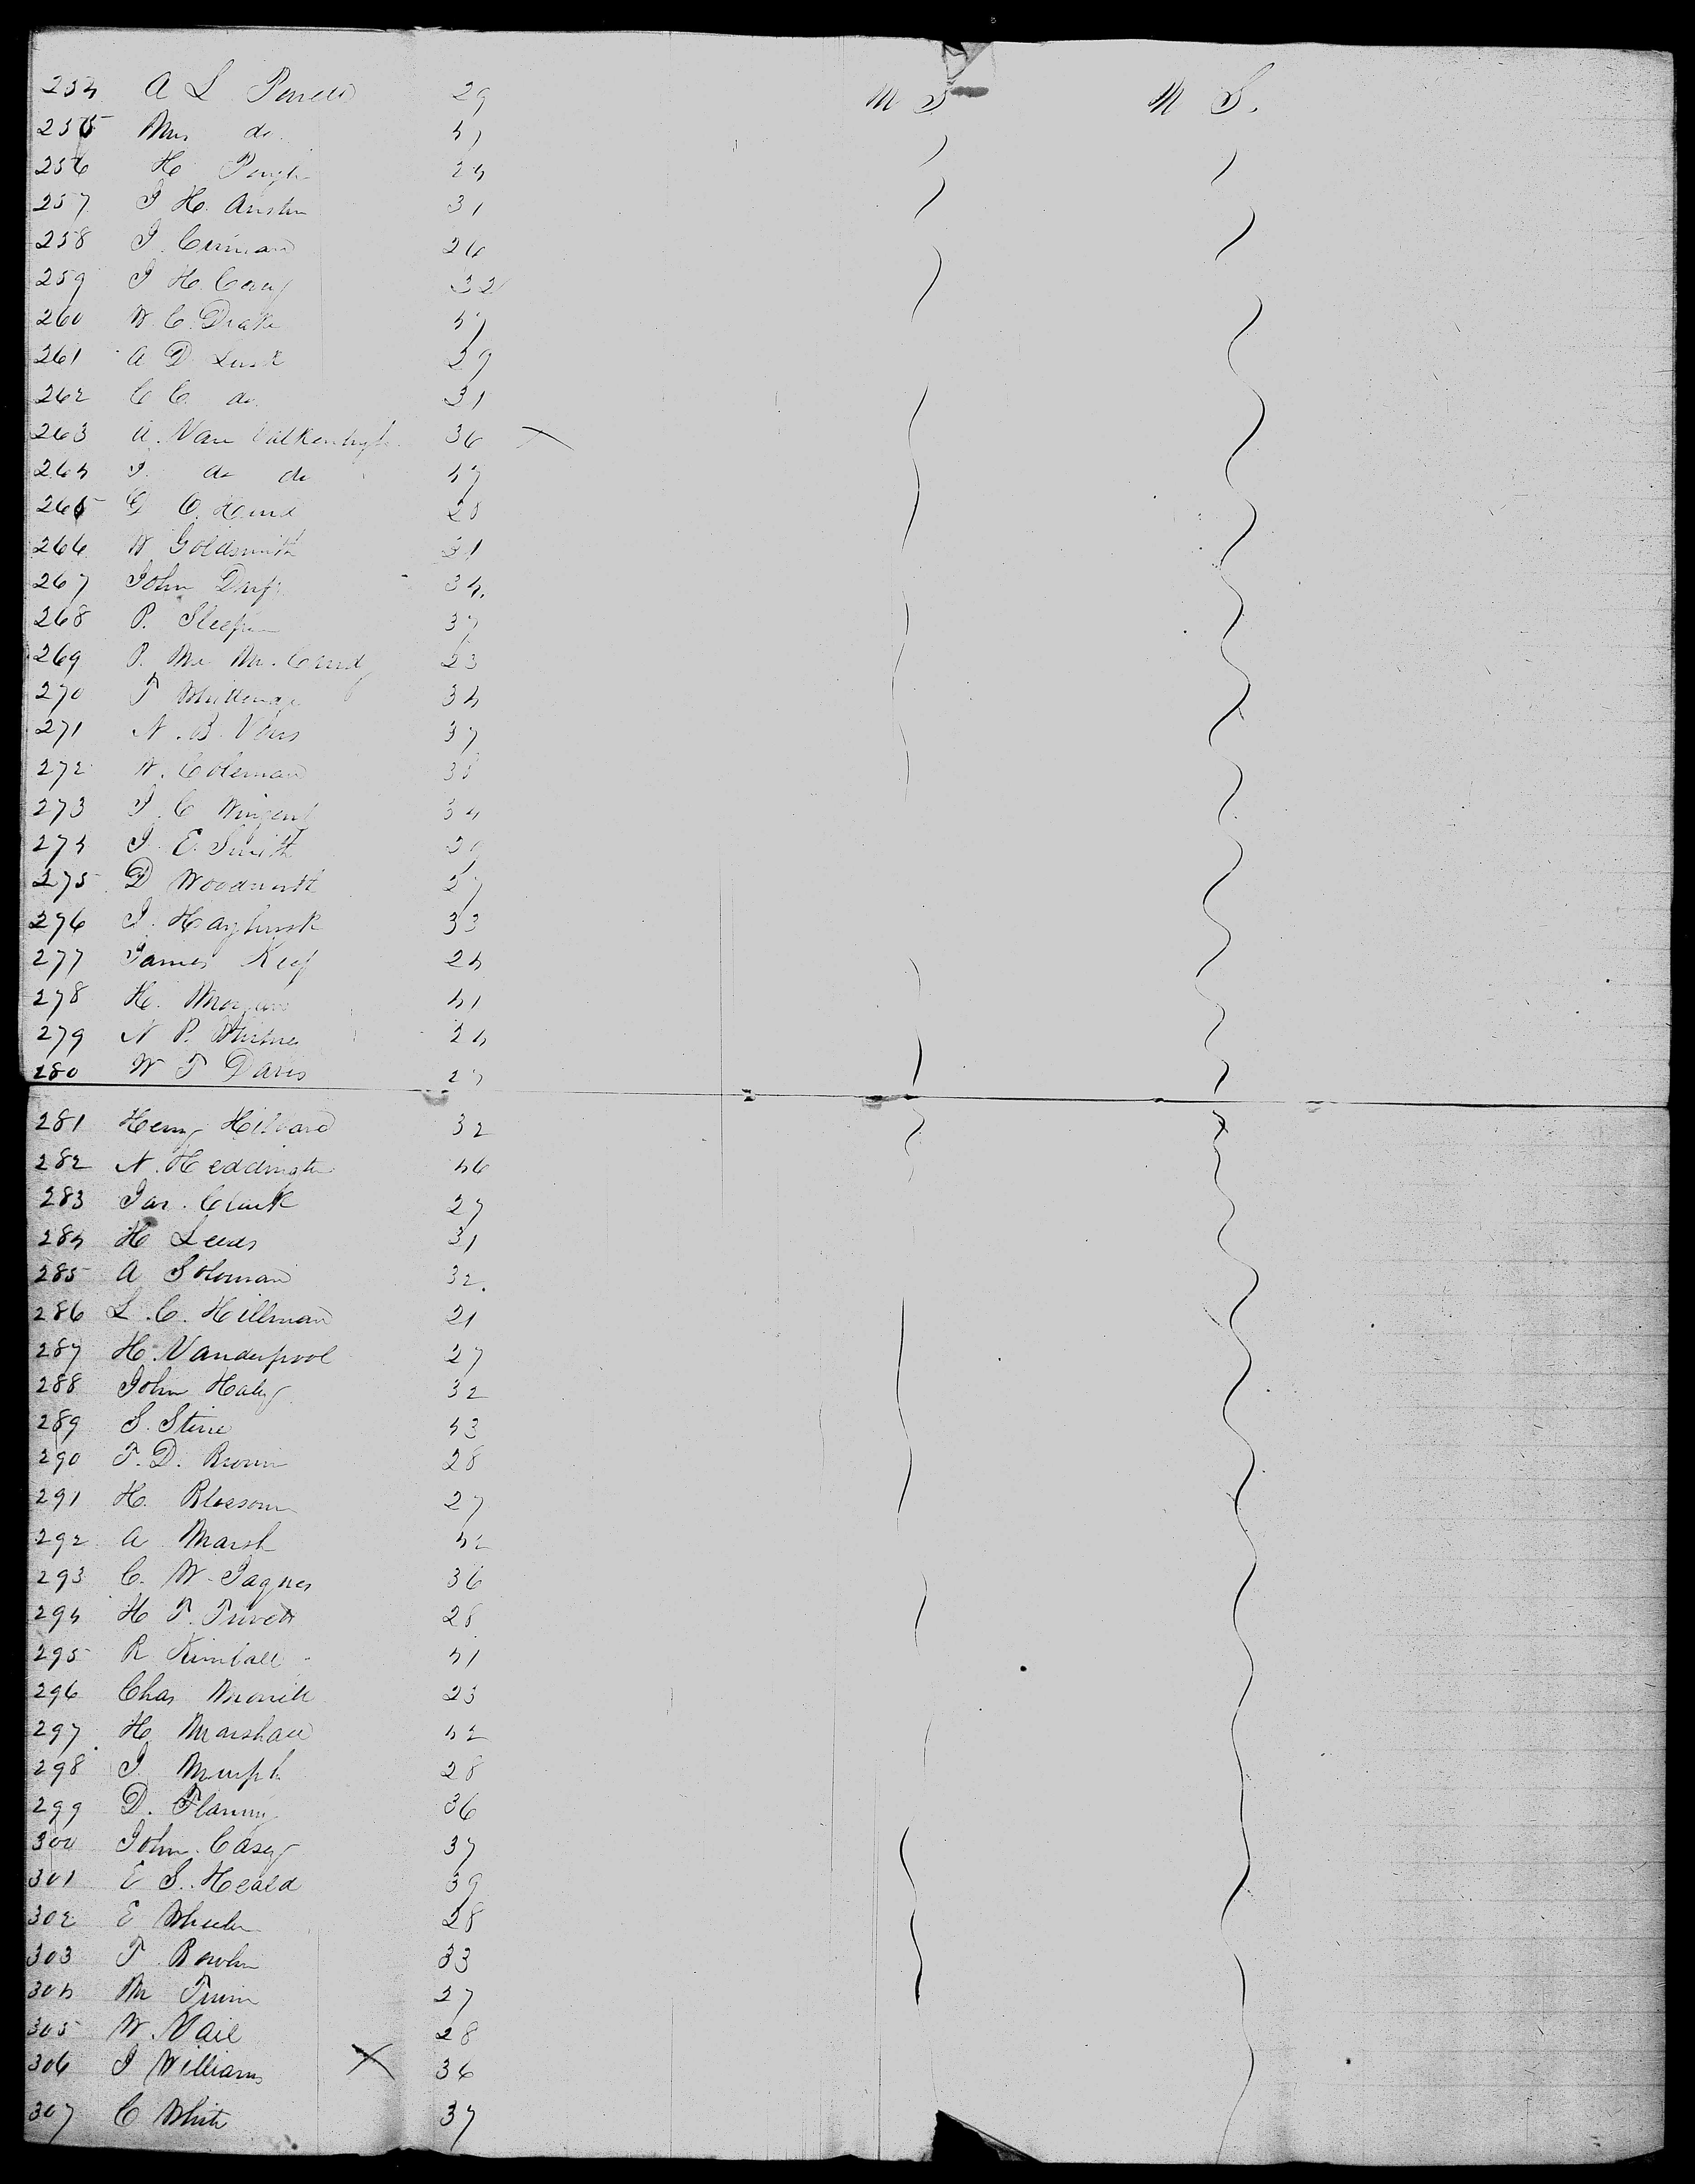 254 A L 29 M S. M S.
255 Mrs do. 41
256 H 24
257 J H. Austin 31
258 J. 26
259 J H. 32
260 W. C. Drake 47
261 A D Lusk 39
262 C C. do. 31
263 A. Van Valkenburgh 36 X
264 J. do do 47
265 G C. 28
266 W Goldsmith 31
267 John 34.
268 P. Sleeper 37
269 P. 23
270 T 34
271 N. B. 37
272 W. Coleman 38
273 J. C Wingent 34
274 J. E. Smith 39
275 D Woodworth 37
276 J. Hayhurst 33
277 James Keef 24
278 H. Morgan 41
279 N P. 34
280 W T Davis 27
281 Henry Hilvard 32
282 N. Heddington 46
283 Jas. Clark 27
284 H Leeds 31
285 A Soloman 32.
286 L. C. Hillman 21
287 H. Vanderpool 27
288 John Haley 32
289 S. Stine 43
290 T. D. Brown 28
291 H. Blossom 27
292 A Marsh 42
293 C. W. Jaques 36
294 H T. 28
295 R Kimball 41
296 Chas Morrill 23
297 H. Marshall 42
298 J. 28
299 D. 36
300 John. Casey 37
301 E S. Heald 39
302 E Wheeler 28
303 T. 33
304 M 27
305 W. Vail 28
306 J Williams X 36
307 C White 37